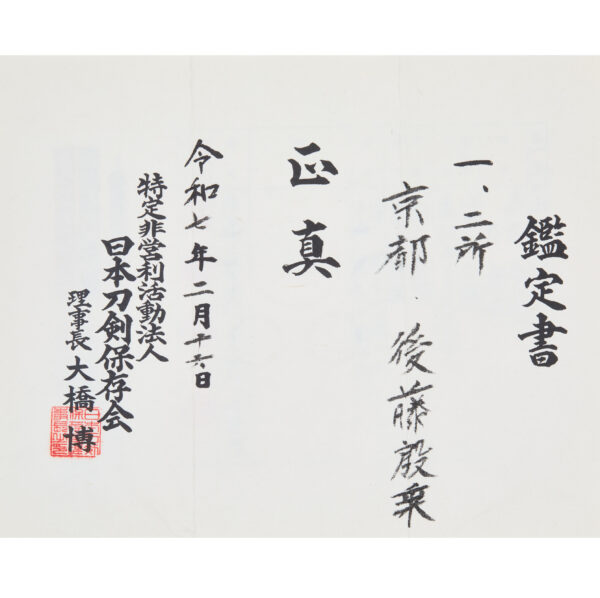 鑑定書
一、二所
京都 . 後藤殷乗
正真
令和七年二月十六日
特定非営利活動法人
日本刀剣保存会
理事長 大橋博